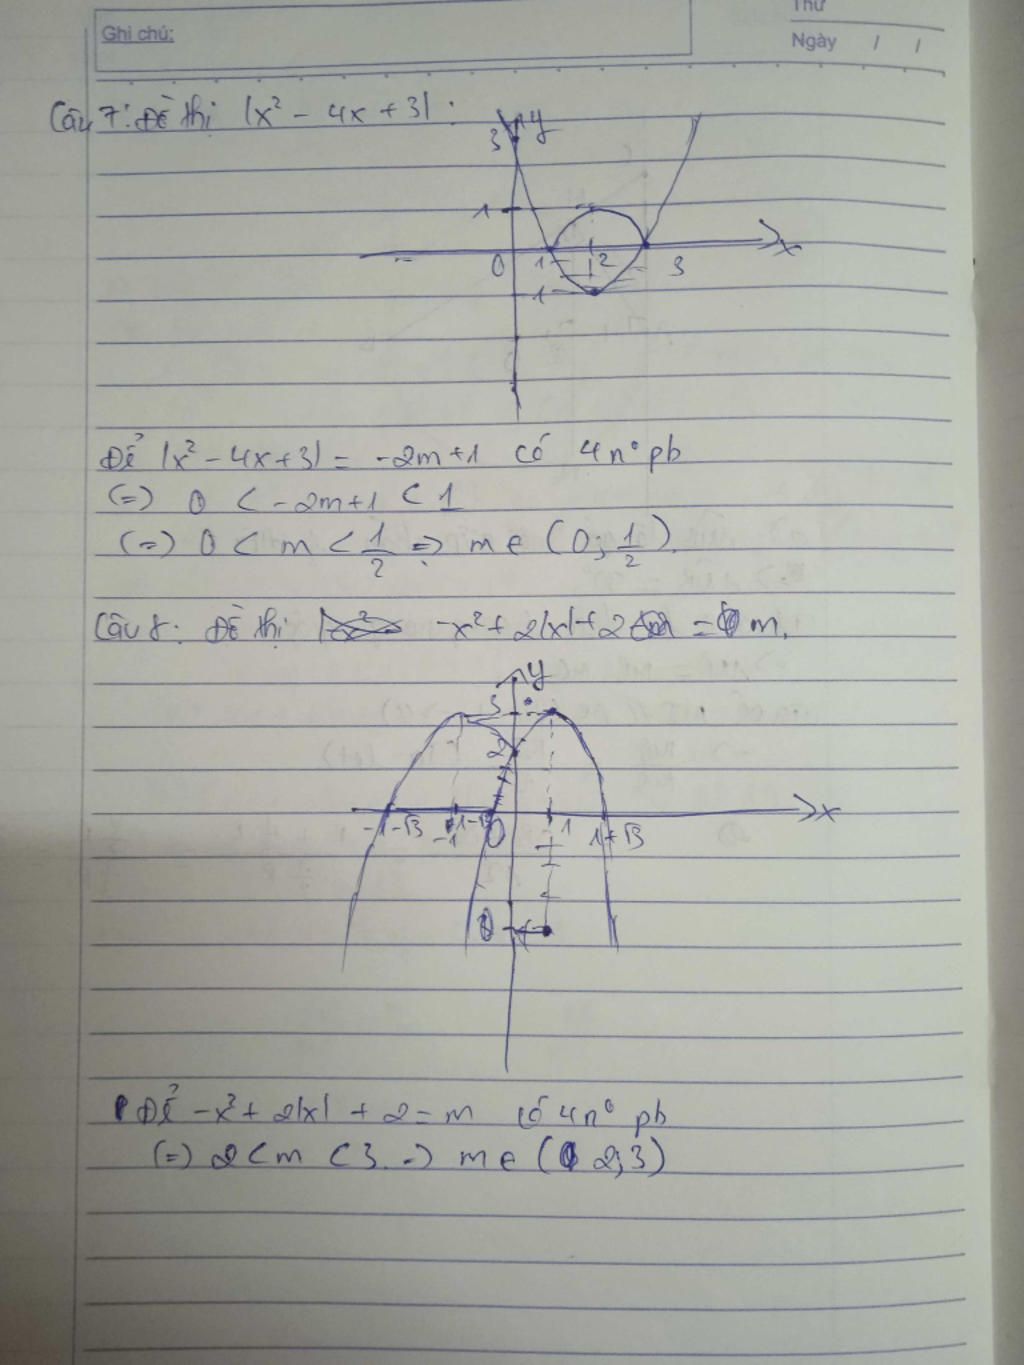 Thứ
Ghi chú:
Ngày / /
Câu 7: Đề thị |x² - 4x + 3| :
y
3
1
0 1 2 3 x
-1
Để |x² - 4x + 3| = -2m + 1 có 4 n° pb
(=) 0 < -2m + 1 < 1
(=) 0 < m < 1/2 => m ∈ (0; 1/2).
Câu 8: Đề thị -x² + 2|x| + 2 = m.
y
3
2
-1-√3 -1 1-√3 0 1 1+√3 x
Để -x² + 2|x| + 2 = m có 4 n° pb
(=) 2 < m < 3. => m ∈ (2; 3)